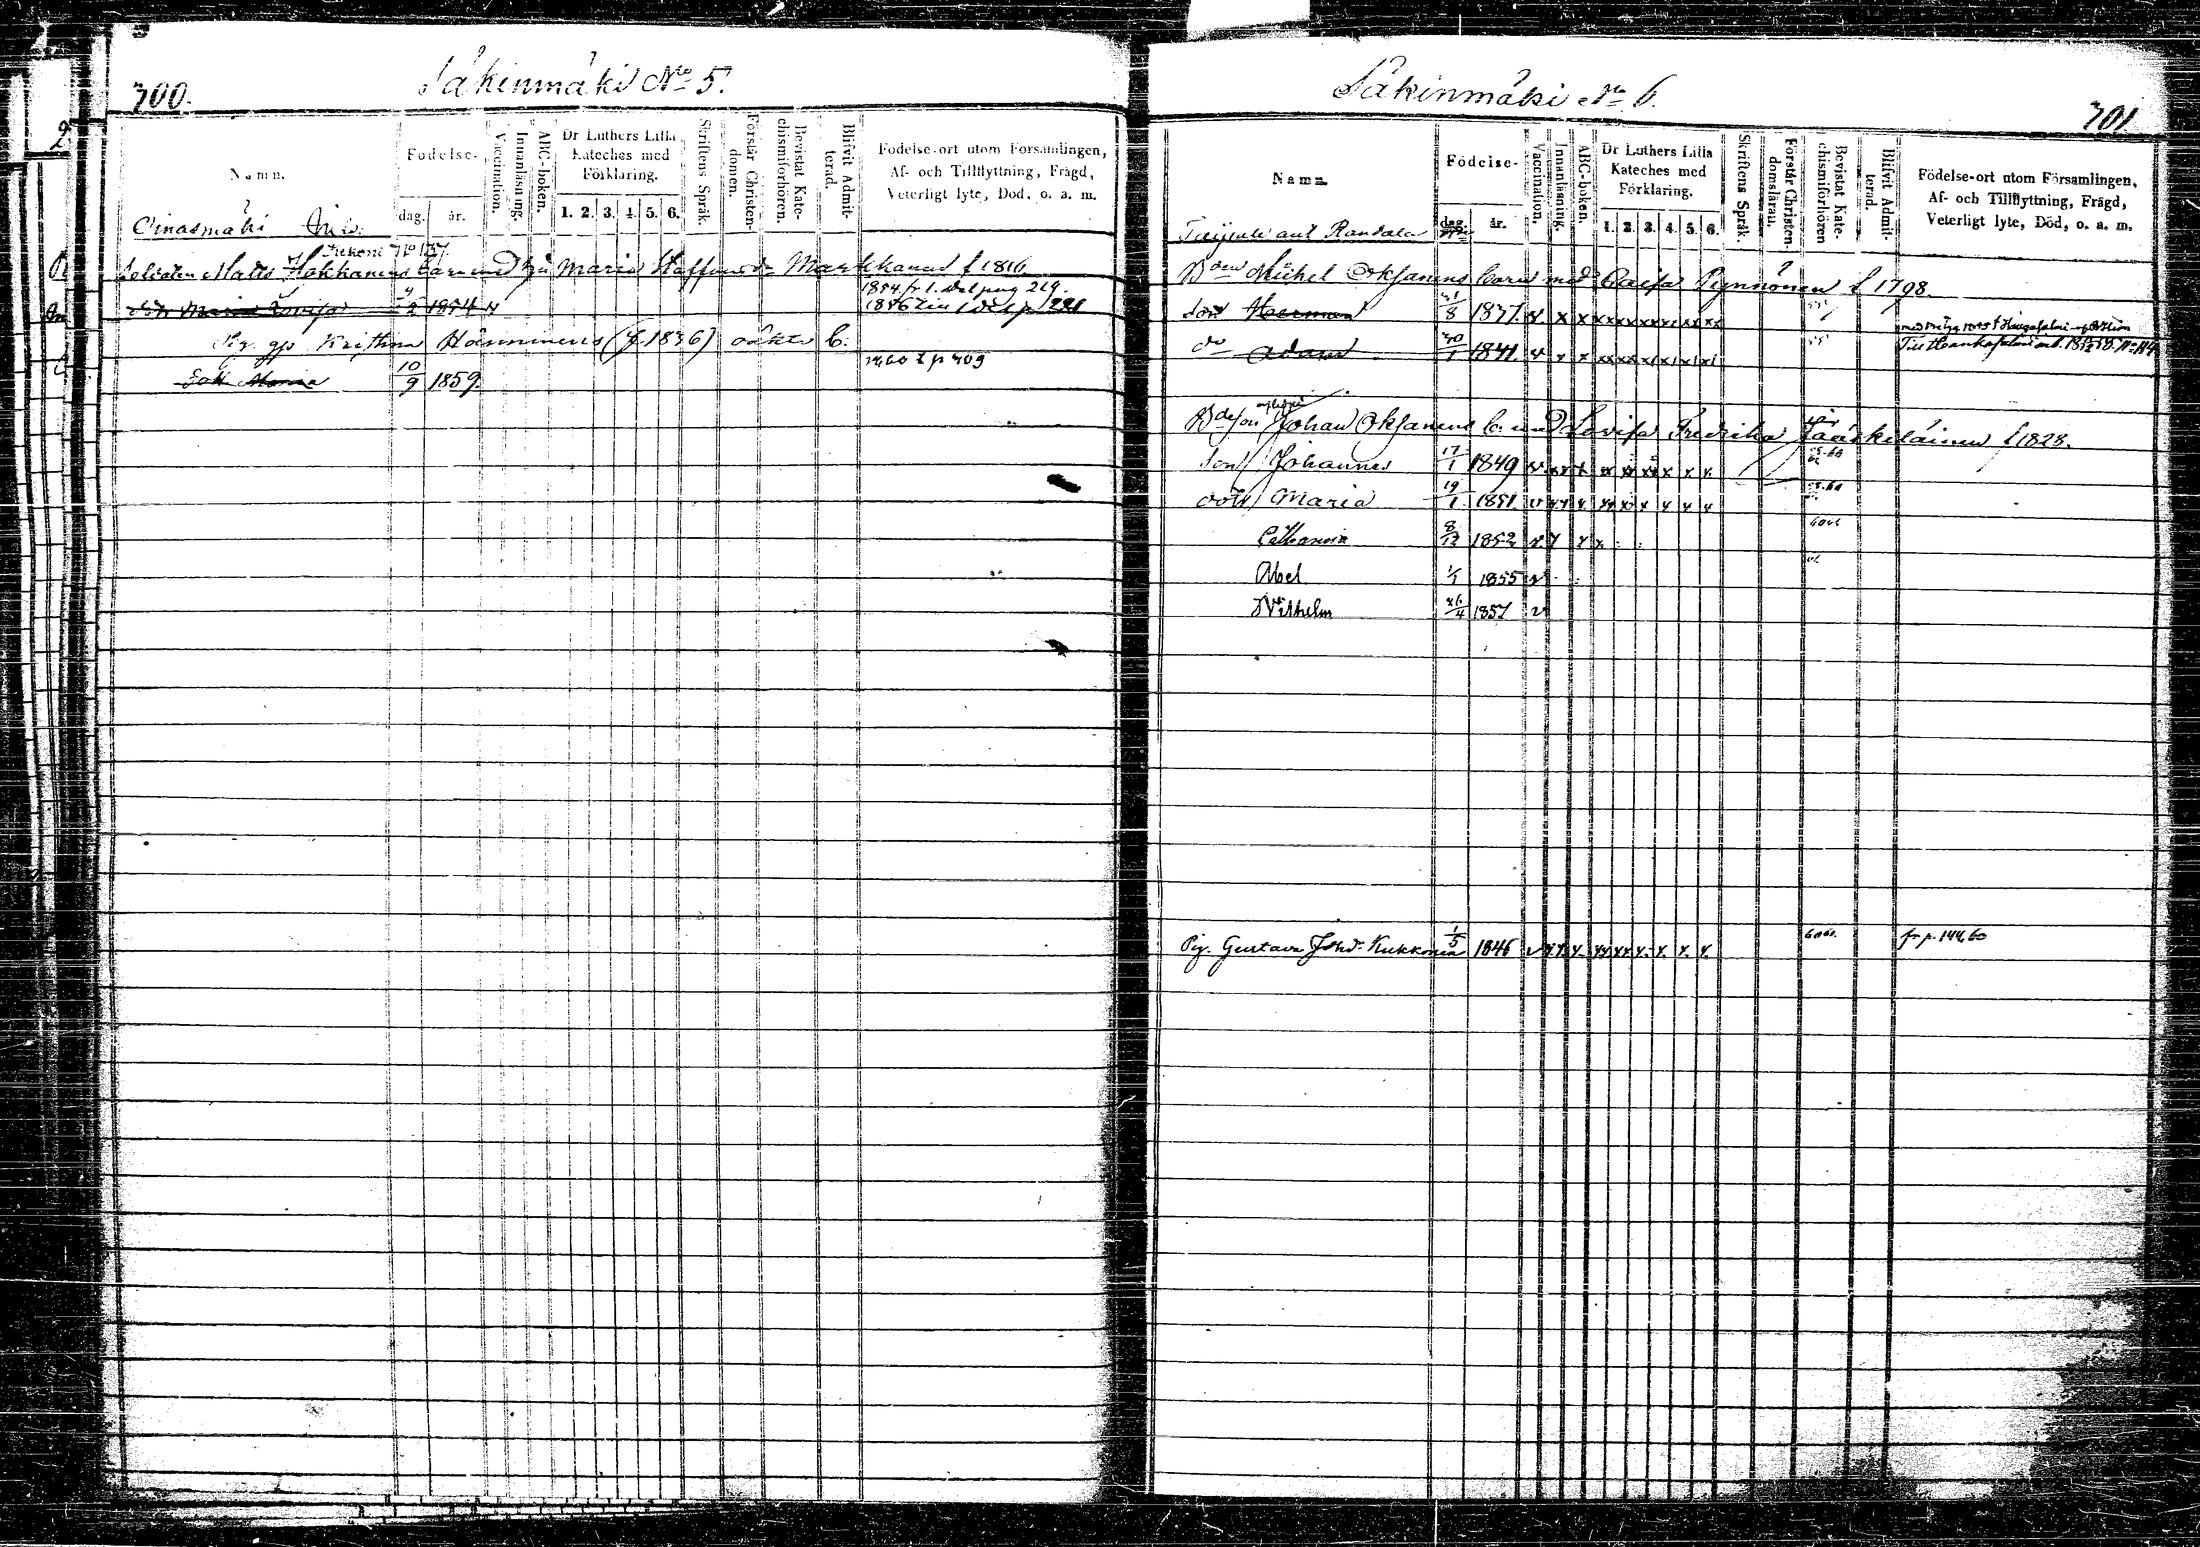 700.
Säkinmäki No 5.
Namn.
Födelse-
dag.
år.
Vaccination.
Innanläsning.
ABC-boken.
Dr Luthers Lilla
Kateches med
Förklaring.
1. 2. 3. 4. 5. 6.
Skriftens Språk.
Förstår Christen-
domen.
Bevistat Kate-
chismiförhören.
Blifvit Admit-
terad.
Födelse-ort utom Församlingen,
Af- och Tillflyttning, Frägd,
Veterligt lyte, Död, o. a. m.
Oinasmäki
Matts Hokkanens barn med Maria Staffansdr Markkanen f 1816
1854 fr 1. del pag 219.
Maria Lovisa 4/2 1854 v
Kristina Hänninens (f. 1836) oäkta b.
1860 t p 709
Maria 10/9 1859.
Säkinmäki No 6.
701
Namn
Födelse-
dag
år.
Vaccination.
Innanläsning.
ABC-boken.
Dr Luthers Lilla
Kateches med
Förklaring.
1. 2. 3. 4. 5. 6.
Skriftens Språk.
Förstår Christen-
domsläran.
Bevistat Kate-
chismiförhören
Blifvit Admit-
terad.
Födelse-ort utom Församlingen,
Af- och Tillflyttning, Frägd,
Veterligt lyte, Död, o. a. m.
Randala
Michel Oksanens barn med Caisa Pynnönen f 1798.
Son Herman 31/8 1837. v. x x x x x x x x
do Adam 30/1 1841. v x x x x x x x x
Johan Oksanens b. med Lovisa Fredrika Jääskeläinen f 1828.
Son Johannes 17/1 1849 v x x x x x x x x
dott Maria 19/1 1851. v x x x x x x x x
Catharina 8/12 1852 v x x x
Abel 1/1 1855 v
Wilhelm 26/4 1857 v
Pig. Gustava Johdr Kukkonen 1/5 1846 v x x x x x x x x fr p. 144, 60